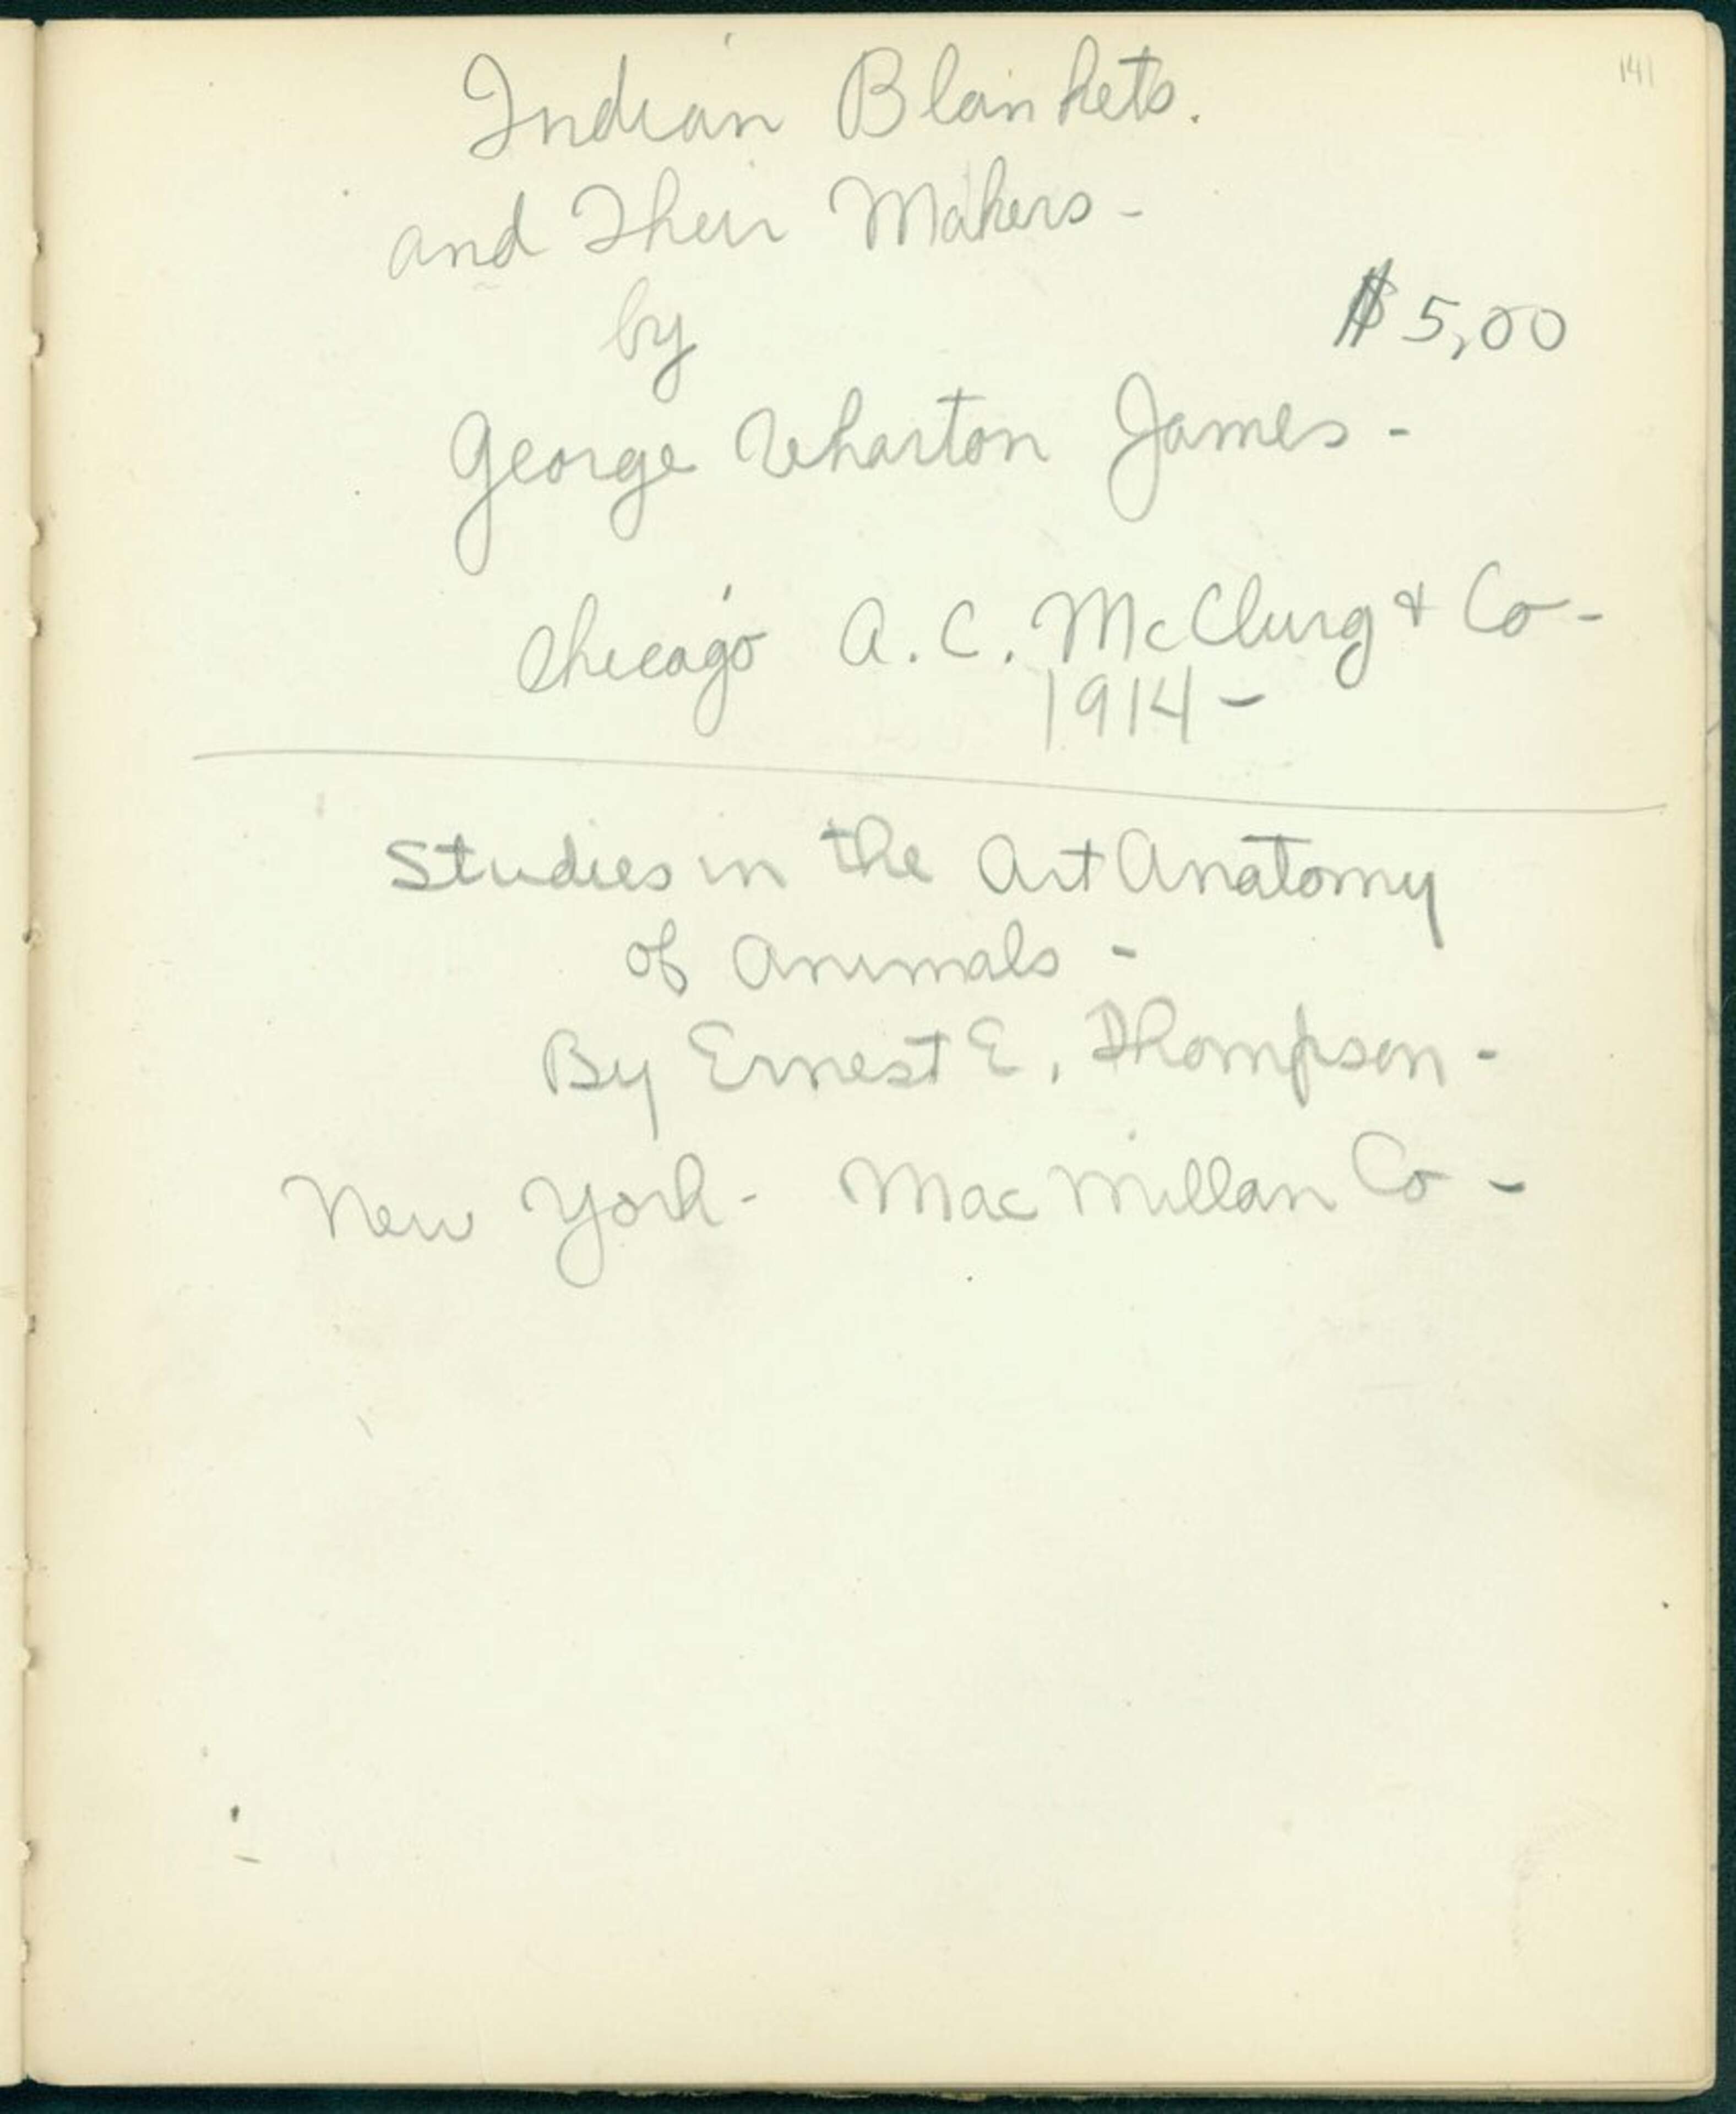 141
Indian Blankets.
and Their Makers -
by
$5,00
George Wharton James -
Chicago A. C. McClurg & Co -
1914 -
Studies in the Art Anatomy
of Animals -
By Ernest E. Thompson -
New York - MacMillan Co -